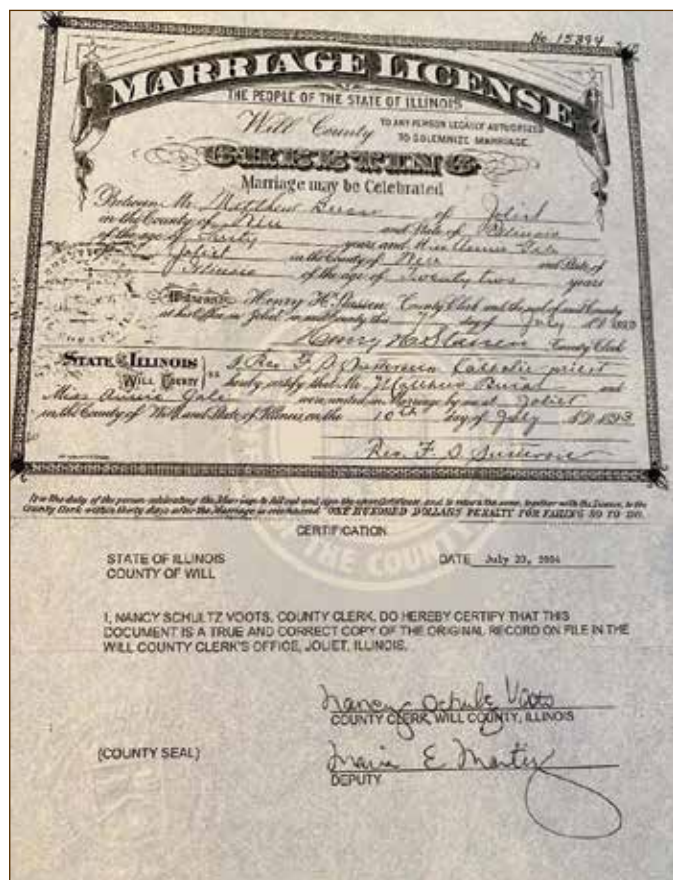 No. 15394
MARRIAGE LICENSE
THE PEOPLE OF THE STATE OF ILLINOIS
Will County TO ANY PERSON LEGALLY AUTHORIZED TO SOLEMNIZE MARRIAGE.
GREETING
Marriage may be Celebrated
Between Mr. Matthew of Joliet
in the County of Will and State of Illinois
of the age of years and Miss Annie Gale
of Joliet in the County of Will and State of
Illinois of the age of Twenty two years
Witness Henry H. Stassen County Clerk and the seal of said County
at his Office in Joliet in said County this 7 day of July A.D. 1893
Henry H. Stassen County Clerk
STATE OF ILLINOIS
WILL COUNTY } ss
I, Rev. F. S. Catholic priest
hereby certify that Mr. and
Miss Annie Gale were united in Marriage by me at Joliet
in the County of Will and State of Illinois on the 10th day of July A.D. 1893
Rev. F. S.
It is the duty of the person celebrating the Marriage to fill out and sign the above Certificate, and to return the same, together with the License, to the
County Clerk within thirty days after the Marriage is solemnized. ONE HUNDRED DOLLARS PENALTY FOR FAILING SO TO DO.
CERTIFICATION
STATE OF ILLINOIS DATE July 23, 2004
COUNTY OF WILL
I, NANCY SCHULTZ VOOTS, COUNTY CLERK, DO HEREBY CERTIFY THAT THIS
DOCUMENT IS A TRUE AND CORRECT COPY OF THE ORIGINAL RECORD ON FILE IN THE
WILL COUNTY CLERK'S OFFICE, JOLIET, ILLINOIS.
Nancy Schultz Voots
COUNTY CLERK, WILL COUNTY, ILLINOIS
(COUNTY SEAL)
Maria E.
DEPUTY
THE COUNTY